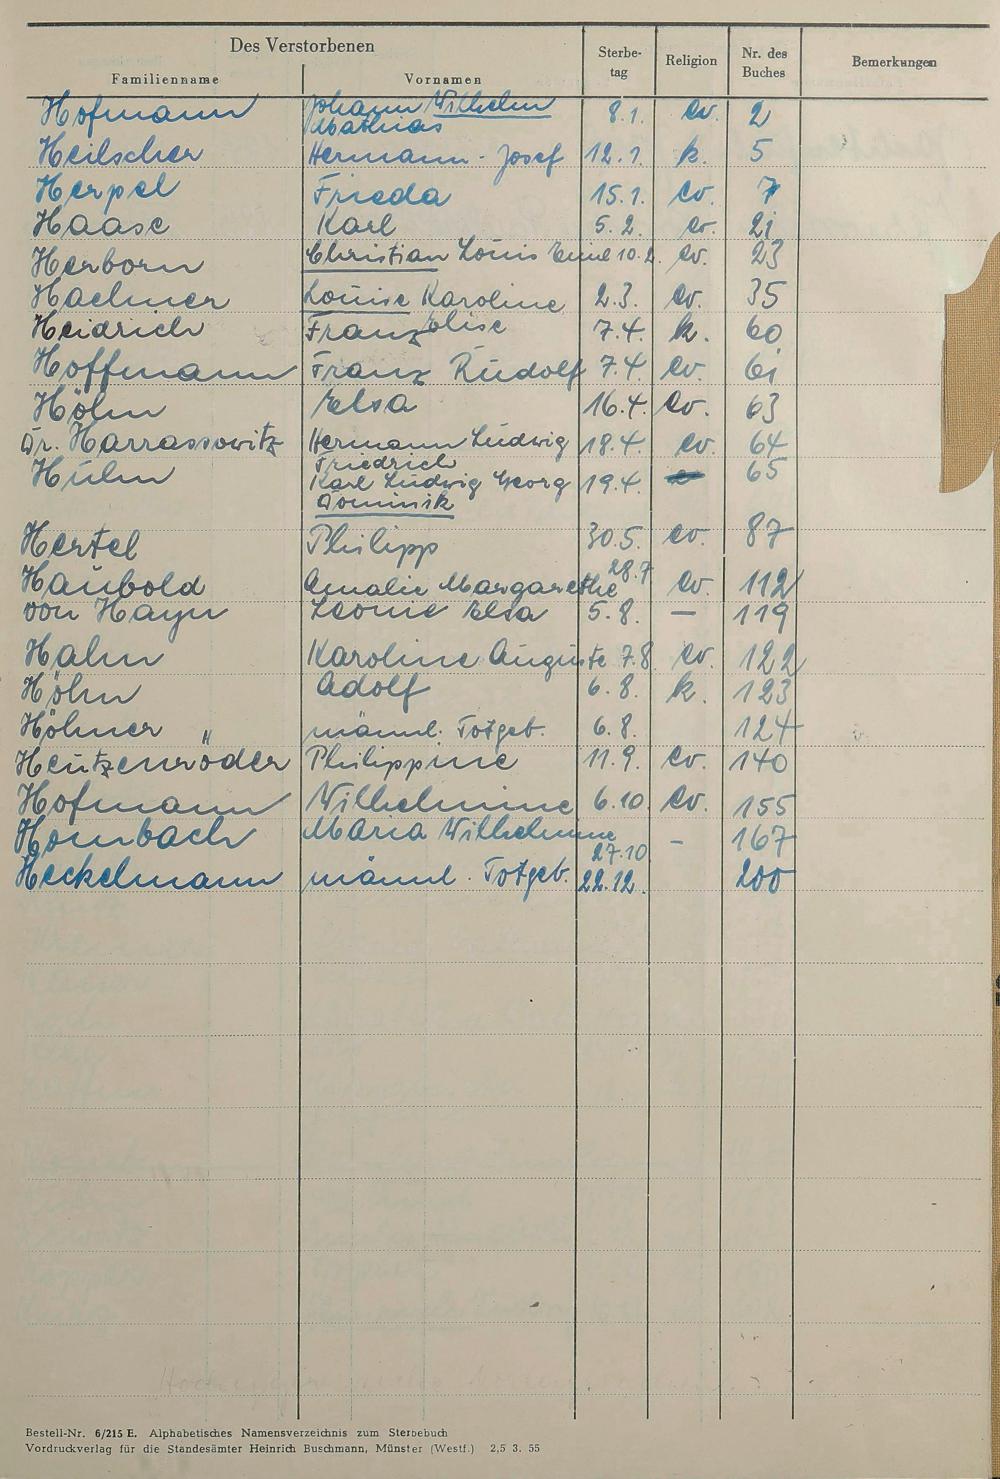 Des Verstorbenen
Familienname Vornamen Sterbe-tag Religion Nr. des Buches Bemerkungen
Hofmann Johann Wilhelm Mathias 8.1. ev. 2
Heilscher Hermann-Josef 12.1. k. 5
Herpel Frieda 15.1. ev. 7
Haase Karl 5.2. ev. 21
Herborn Christian Louis Emil 10.2. ev. 23
Haehner Louise Karoline Elise 2.3. ev. 35
Heidrich Franz 7.4. k. 60
Hoffmann Franz Rudolf 7.4. ev. 61
Höhn Elsa 16.4. ev. 63
Dr. Harrassowitz Hermann Ludwig Friedrich 18.4. ev. 64
Huhn Karl Ludwig Georg Dominik 19.4. 65
Hertel Philipp 30.5. ev. 87
Haubold Amalie Margarethe 28.7 ev. 112
von Hayn Leonie Elsa 5.8. — 119
Hahn Karoline Auguste 7.8. ev. 122
Höhn Adolf 6.8. k. 123
Höhner männl. Totgeb. 6.8. 124
Heutzenröder Philippine 11.9. ev. 140
Hofmann Wilhelmine 6.10. ev. 155
Hombach Maria Wilhelmine 27.10 - 167
Heckelmann männl. Totgeb. 22.12. 200
Bestell-Nr. 6/215 E. Alphabetisches Namensverzeichnis zum Sterbebuch
Vordruckverlag für die Standesämter Heinrich Buschmann, Münster (Westf.) 2,5 3. 55